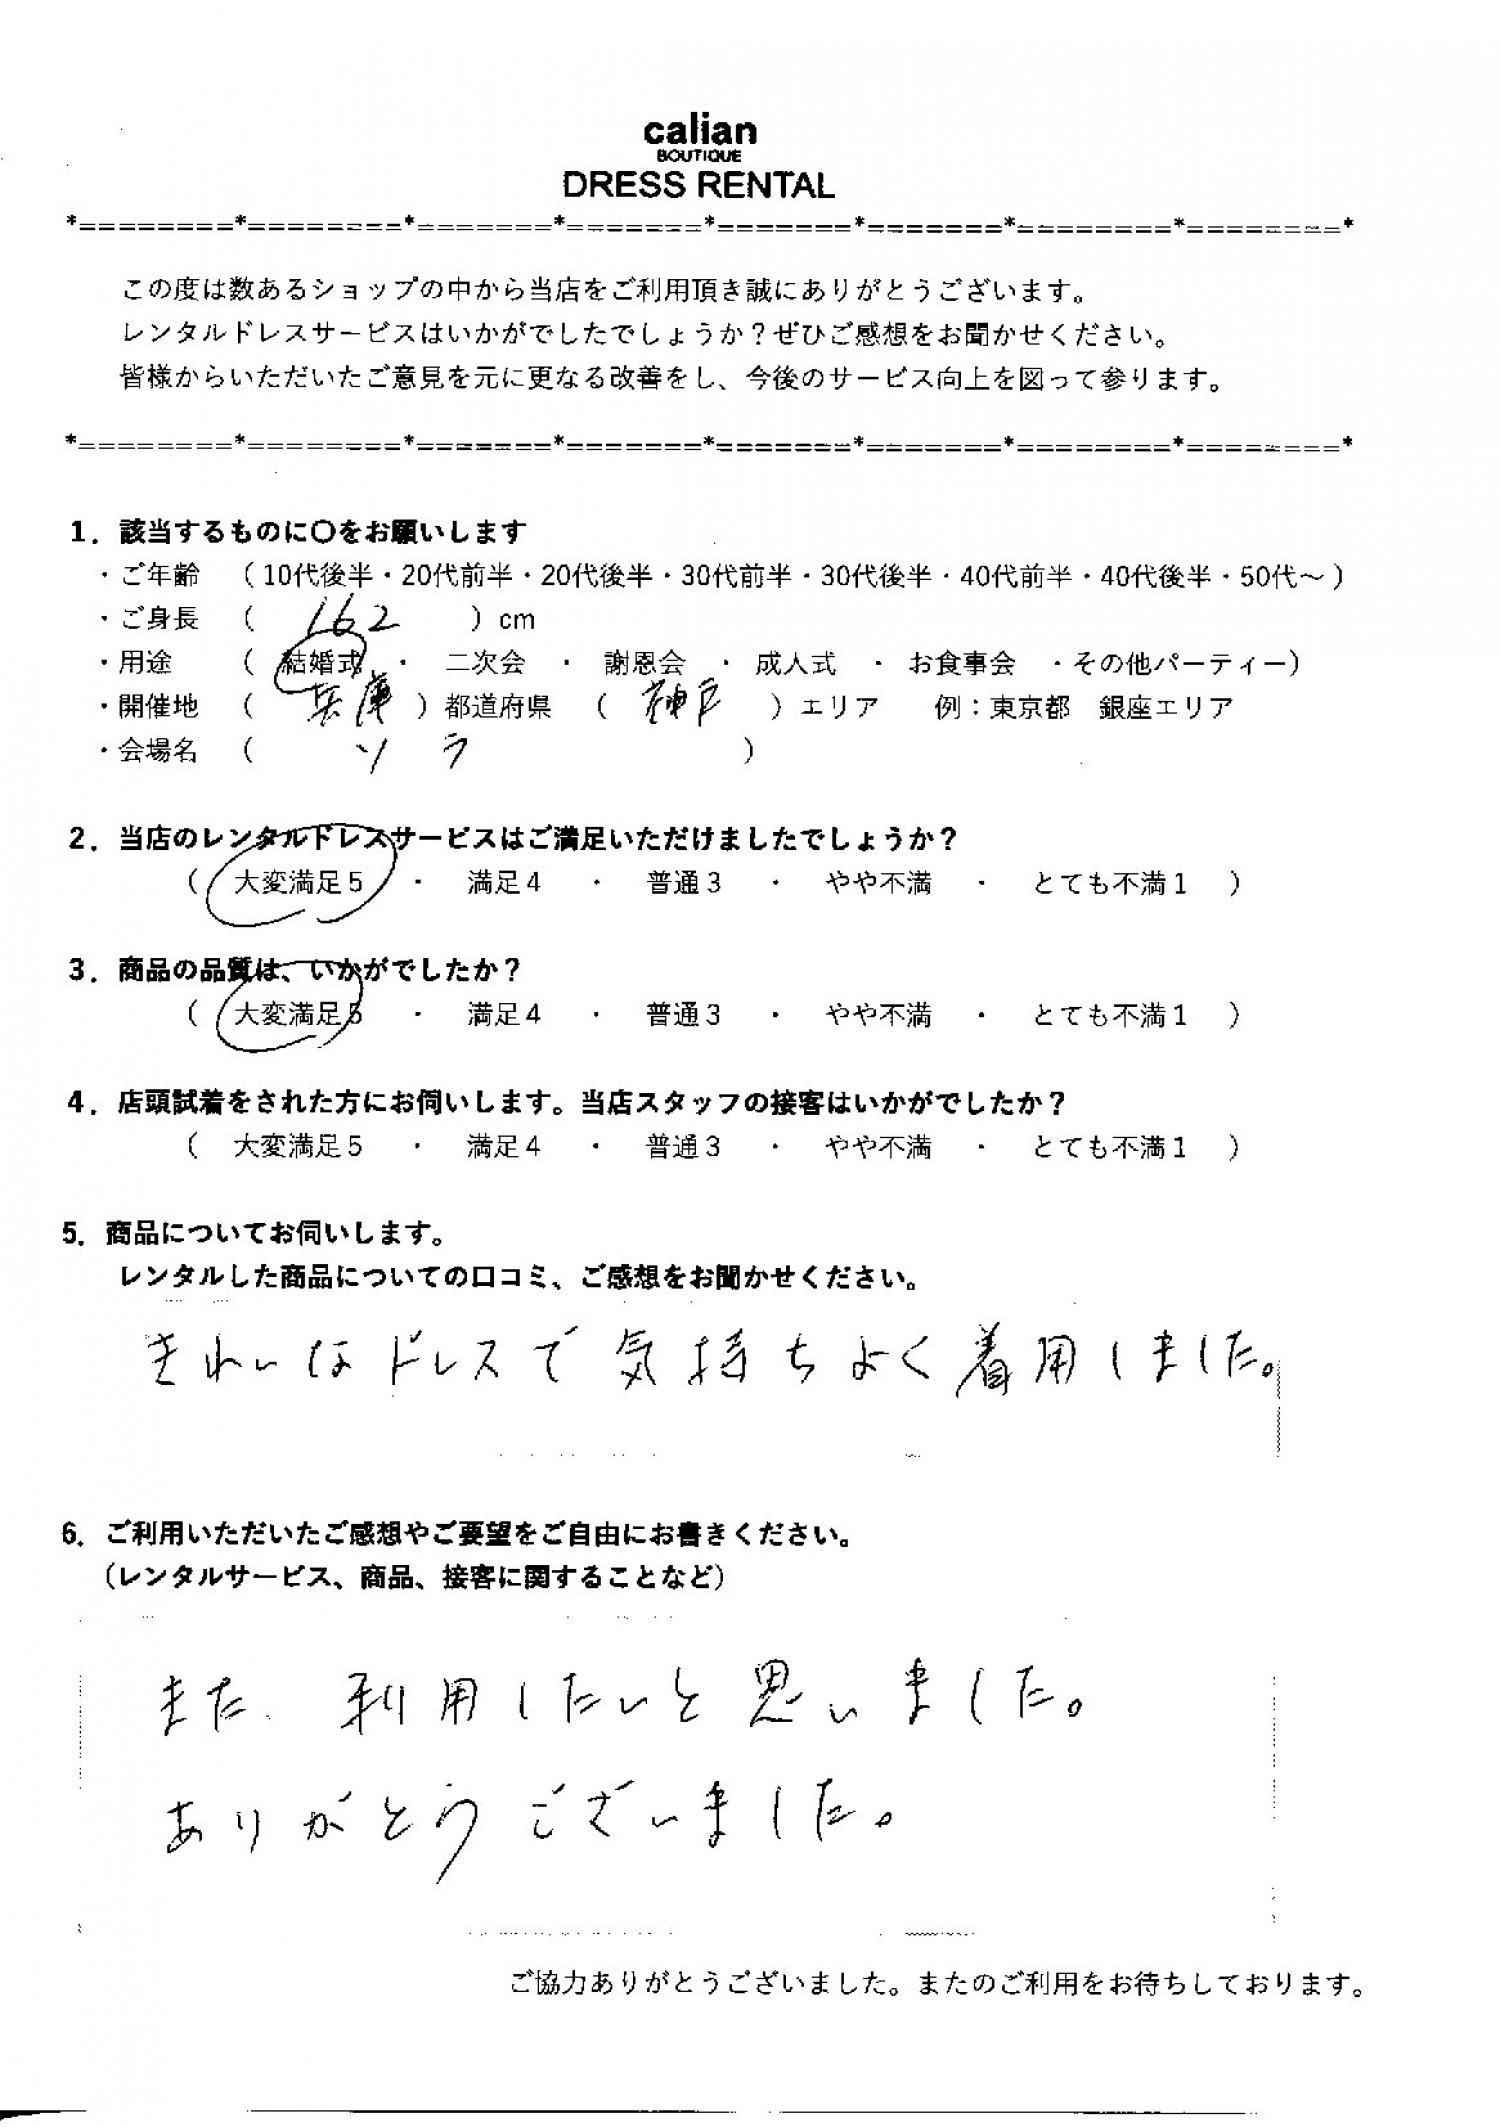 calian
BOUTIQUE
DRESS RENTAL
*========*========*=======*=======*=======*=======*========*========*
この度は数あるショップの中から当店をご利用頂き誠にありがとうございます。
レンタルドレスサービスはいかがでしたでしょうか？ぜひご感想をお聞かせください。
皆様からいただいたご意見を元に更なる改善をし、今後のサービス向上を図って参ります。
*========*========*=======*=======*=======*=======*========*========*
1．該当するものに〇をお願いします
・ご年齢　（10代後半・20代前半・20代後半・30代前半・30代後半・40代前半・40代後半・50代～）
・ご身長　（　162　）cm
・用途　（　結婚式　・　二次会　・　謝恩会　・　成人式　・　お食事会　・その他パーティー）
・開催地　（　兵庫　）都道府県　（　神戸　）エリア　　例：東京都　銀座エリア
・会場名　（　ソラ　）
2．当店のレンタルドレスサービスはご満足いただけましたでしょうか？
（　大変満足5　・　満足4　・　普通3　・　やや不満　・　とても不満1　）
3．商品の品質は、いかがでしたか？
（　大変満足5　・　満足4　・　普通3　・　やや不満　・　とても不満1　）
4．店頭試着をされた方にお伺いします。当店スタッフの接客はいかがでしたか？
（　大変満足5　・　満足4　・　普通3　・　やや不満　・　とても不満1　）
5．商品についてお伺いします。
レンタルした商品についての口コミ、ご感想をお聞かせください。
きれいなドレスで気持ちよく着用しました。
6．ご利用いただいたご感想やご要望をご自由にお書きください。
（レンタルサービス、商品、接客に関することなど）
また、利用したいと思いました。
ありがとうございました。
ご協力ありがとうございました。またのご利用をお待ちしております。